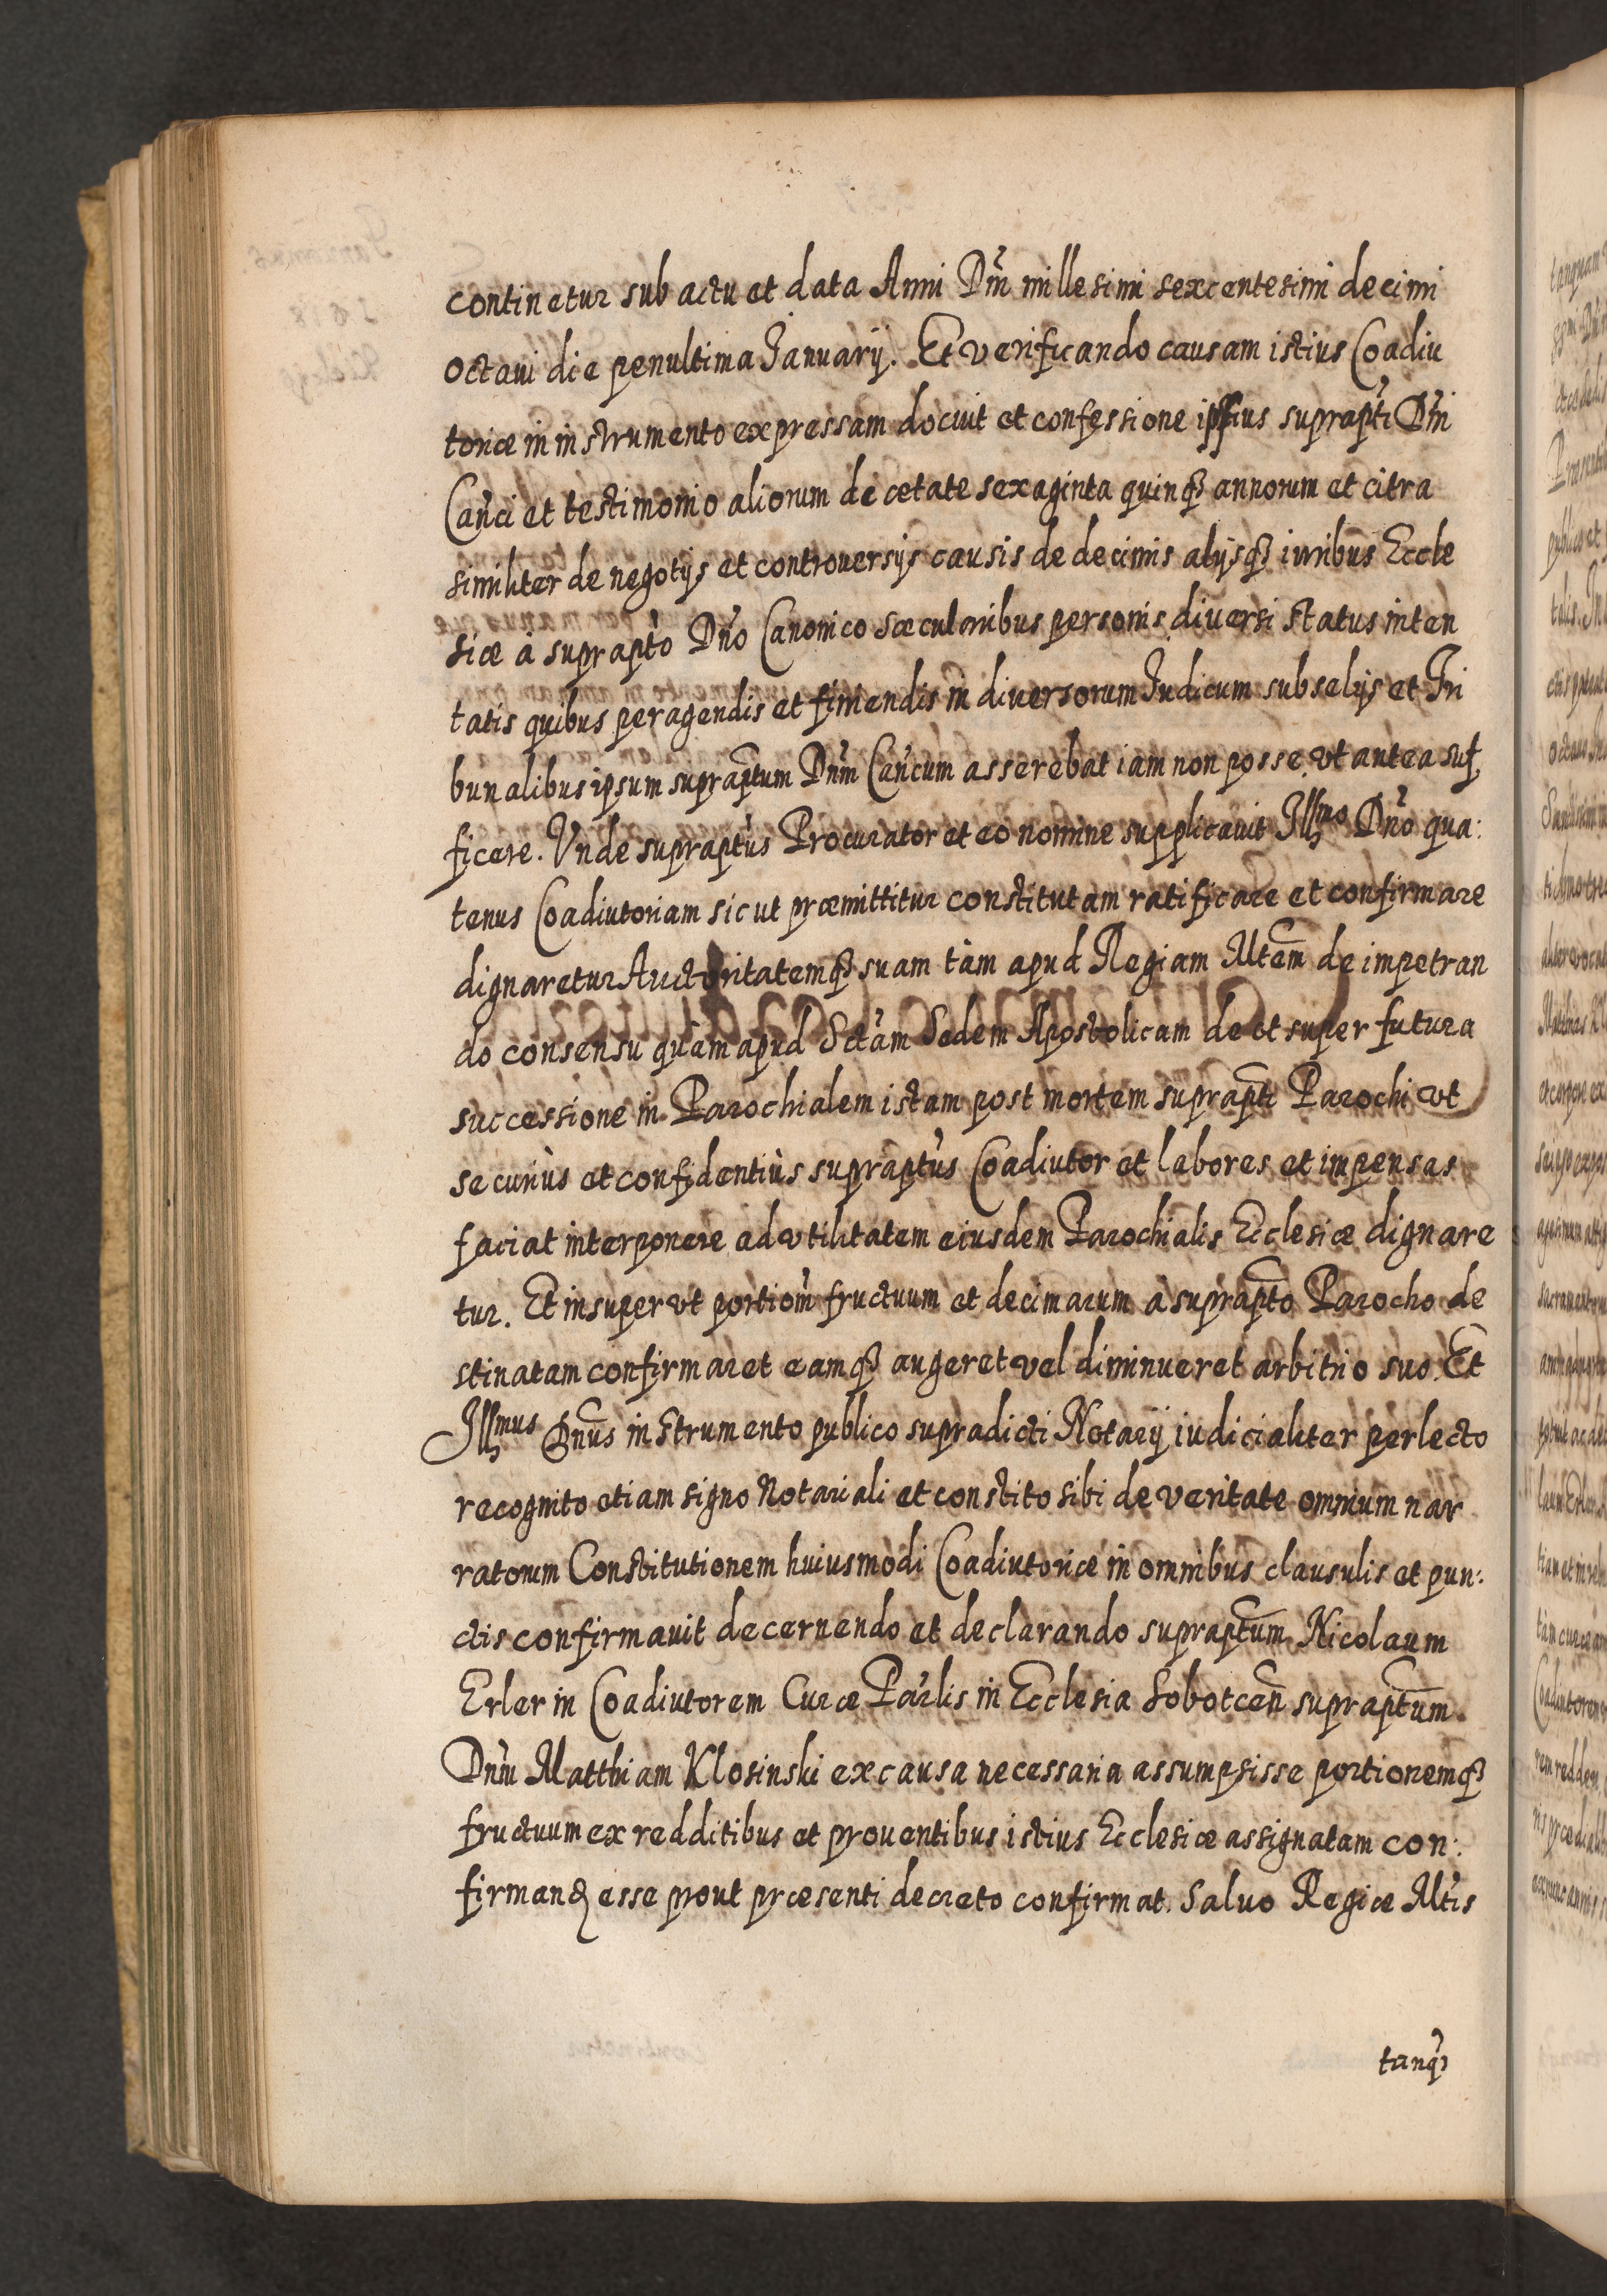 continetur sub actu et data Anni Dni millesimi sexcentesimi decimi
octaui die penultima Januarij. Et verificando causam istius Coadiu
toriæ in instrumento expressam docuit et confessione ipsius suprapti Dni
Canci et testimonio aliorum de ætate sexaginta quinq annorum et citra
similiter de negotijs et controuersijs causis de decimis alijsq iuribus Eccle
siæ à suprapto Dno Canonico sæcularibus personis diuersi status inten
tatis quibus peragendis et finiendis in diuersorum Judicum subselijs et Tri
bunalibus ipsum supraptum Dnm Cancum asserebat iam non posse vt antea suf
ficere. Vnde supraptus Procurator et eo nomine supplicauit Illmo Dno qua:
tenus Coadiutoriam sicut præmittitur constitutam ratificare et confirmare
dignaretur Auctoritatemq suam tàm apud Regiam Mtem de impetran
do consensu quàm apud Sctam Sedem Apostolicam de et super futura
successione in Parochialem istam post mortem suprapti Parochi vt
securiùs et confidentiùs supraptus Coadiutor et labores et impensas
faciat interponere ad vtilitatem eiusdem Parochialis Ecclesiæ dignare
tur. Et insuper vt portiom fructuum et decimarum à suprapto Parocho de
stinatam confirmaret eamq augeret vel diminueret arbitrio suo. Et
Illmus Dnus instrumento publico supradicti Notarij iudicialiter perlecto
recognito etiam signo Notariali et constito sibi de veritate omnium nar
ratorum Constitutionem huiusmodi Coadiutoriæ in omnibus clausulis et pun:
ctis confirmauit decernendo et declarando supraptum Nicolaum
Erler in Coadiutorem Curæ Parlis in Ecclesia Sobotcen supraptum
Dnm Matthiam Klosinski ex causa necessaria assumpsisse portionemq
fructuum ex redditibus et prouentibus istius Ecclesiæ assignatam con:
firmand esse prout præsenti decreto confirmat. Saluo Regiæ Mtis
tanq